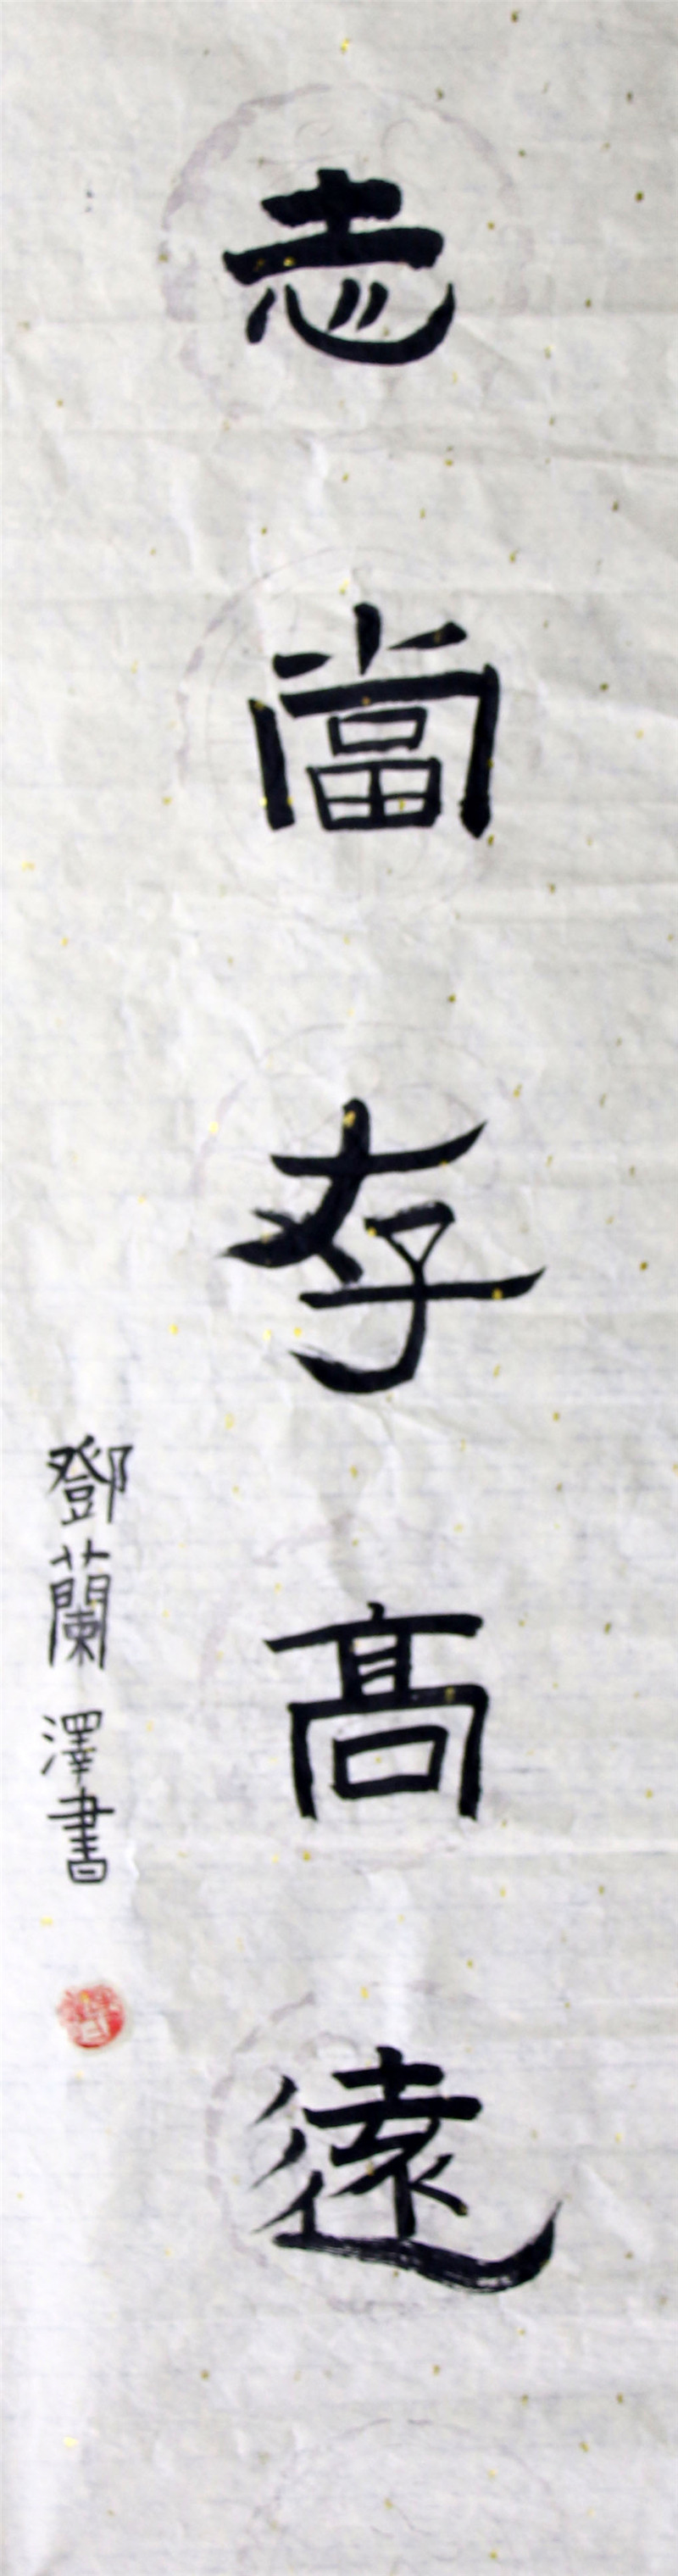 志當存高遠
鄧蘭澤書